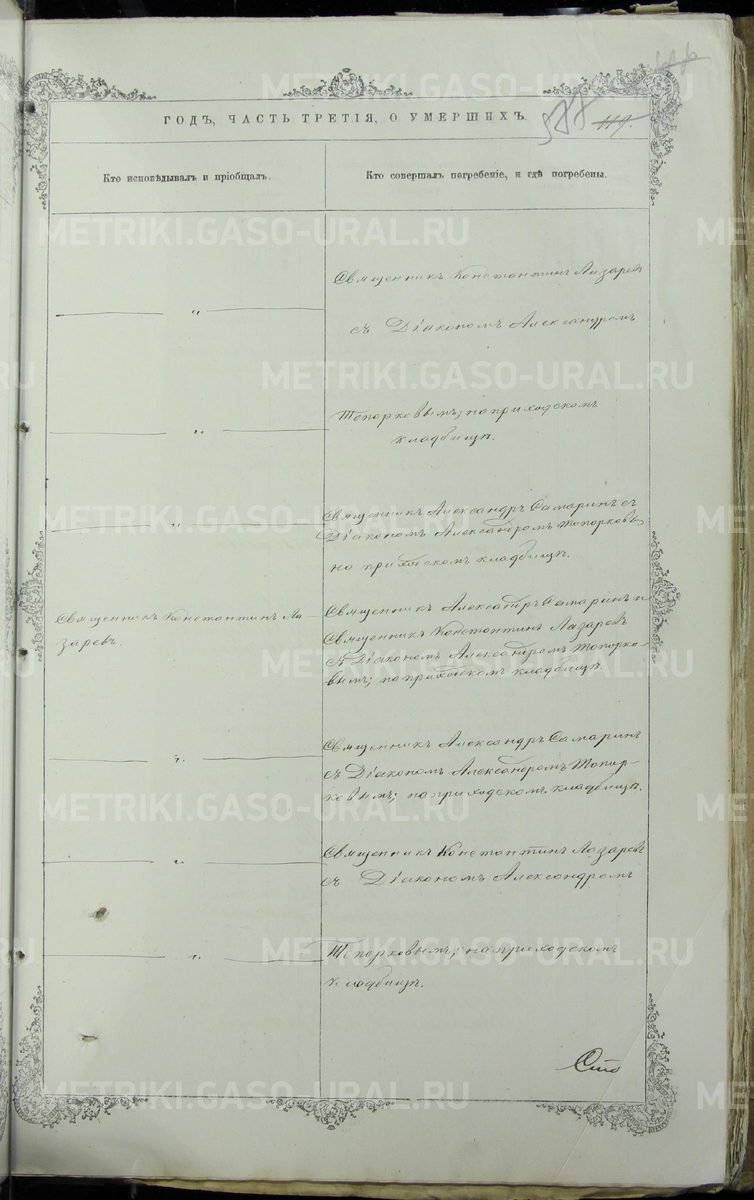 ГОДЪ, ЧАСТЬ ТРЕТІЯ, О УМЕРШИХЪ.
119.
Кто исповѣдывалъ и пріобщалъ.
Кто совершалъ погребеніе, и гдѣ погребены.
Священникъ Константинъ Лазаревъ
съ Діакономъ Александромъ
Топорковымъ; на приходскомъ
кладбищѣ.
Священникъ Александръ Самаринъ съ
Діакономъ Александромъ Топорковы,
на приходскомъ кладбищѣ.
Священникъ Константинъ Ла-
заревъ.
Священникъ Александръ Самаринъ и
Священникъ Константинъ Лазаревъ
съ Діакономъ Александромъ Топорко-
вымъ; на приходскомъ кладбищѣ.
Священникъ Александръ Самаринъ
съ Діакономъ Александромъ Топор-
ковымъ; на приходскомъ кладбищѣ.
Священникъ Константинъ Лазаревъ
съ Діакономъ Александромъ
Топорковымъ; на приходскомъ
кладбищѣ.
Сто
METRIKI.GASO-URAL.RU